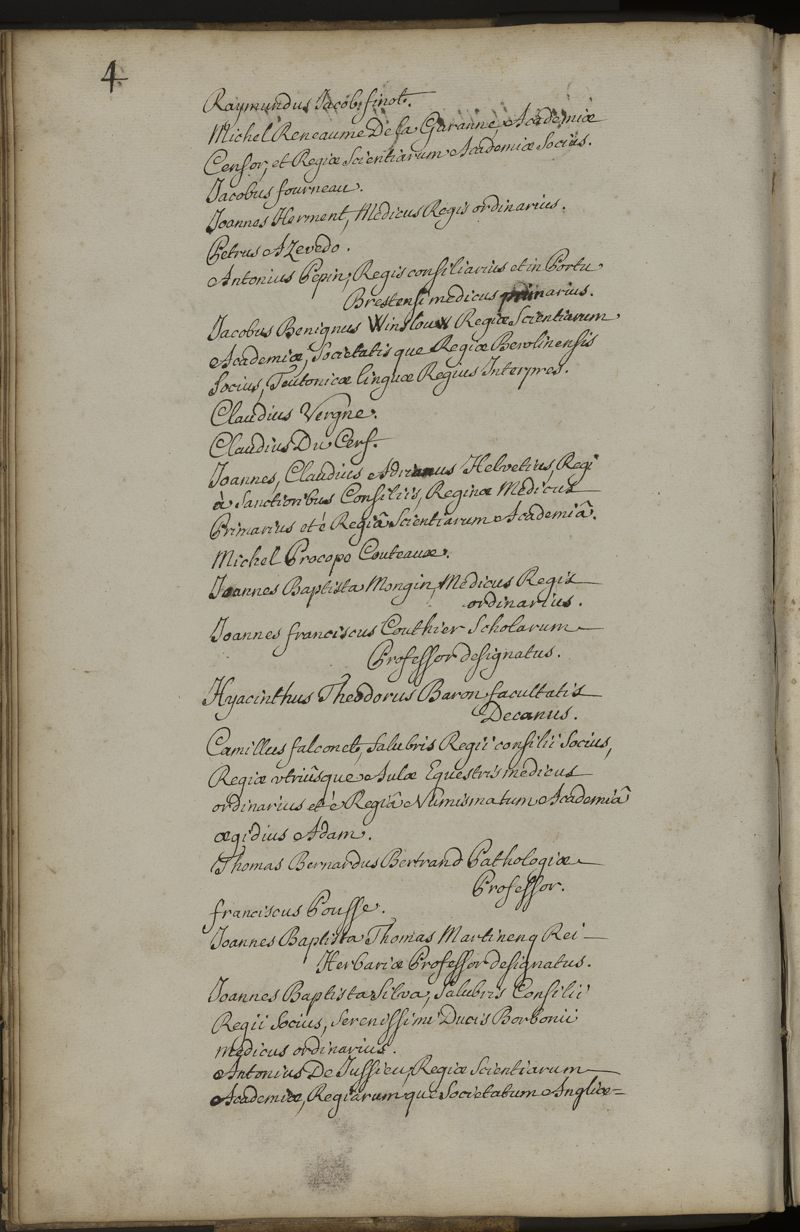 4
Raymundus Jacob finot.
Michel Reneaume De la Garanne, Academiæ
Censor, et Regiæ Scientiarum Academiæ Socius.
Jacobus fourneau.
Joannes Herment, Medicus Regis ordinarius.
Petrus Azevedo.
Antonius Pepin, Regis consiliarius et in Portu
Brestensi medicus primarius.
Jacobus Benignus Winslouu Regiæ Scientiarum
Academiæ, Societatis que Regiæ Berolinensis
Socius, Teutonicæ linguæ Regius Interpres.
Claudius Vergne.
Claudius Du Cerf.
Joannes, Claudius Adrianus Helvetius, Regi
à Sanctioribus Consiliis, Reginæ Medicus
Primarius et è Regiâ Scientiarum Academiâ.
Michel Procope Couteaux.
Joannes Baptista Mongin, Medicus Regis
ordinarius.
Joannes franciscus Couthier Scholarum
Professor designatus.
Hyacinthus Theodorus Baron facultatis
Decanus.
Camillus falconet, Salubris Regii consilii Socius,
Regiæ vtriûsque Aulæ Equestris medicus
ordinarius et è Regiâ Numismatum Academiâ
ægidius Adam.
Thomas Bernardus Bertrand Pathologiæ
Professor.
franciscus Pousse.
Joannes Baptista Thomas Martinenq Rei
Herbariæ Professor designatus.
Joannes Baptista Silva, Salubris Consilii
Regii Socius, Serenissimi Ducis Borbonii
medicus ordinarius.
Antonius De Jussieu, Regiæ Scientiarum
Academiæ, Regiarum que Societatum Angliæ=